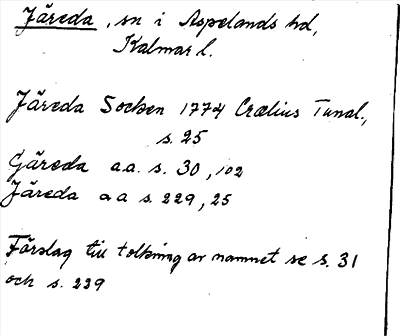 Järeda, sn i Aspelands hd,
Kalmar l.
Järeda Socken 1774 Crælius Tunal.,
s. 25
Gäreda a.a. s. 30, 102
Järeda a a s. 229, 25
Förslag till tolkning av namnet se s. 31
och s. 229